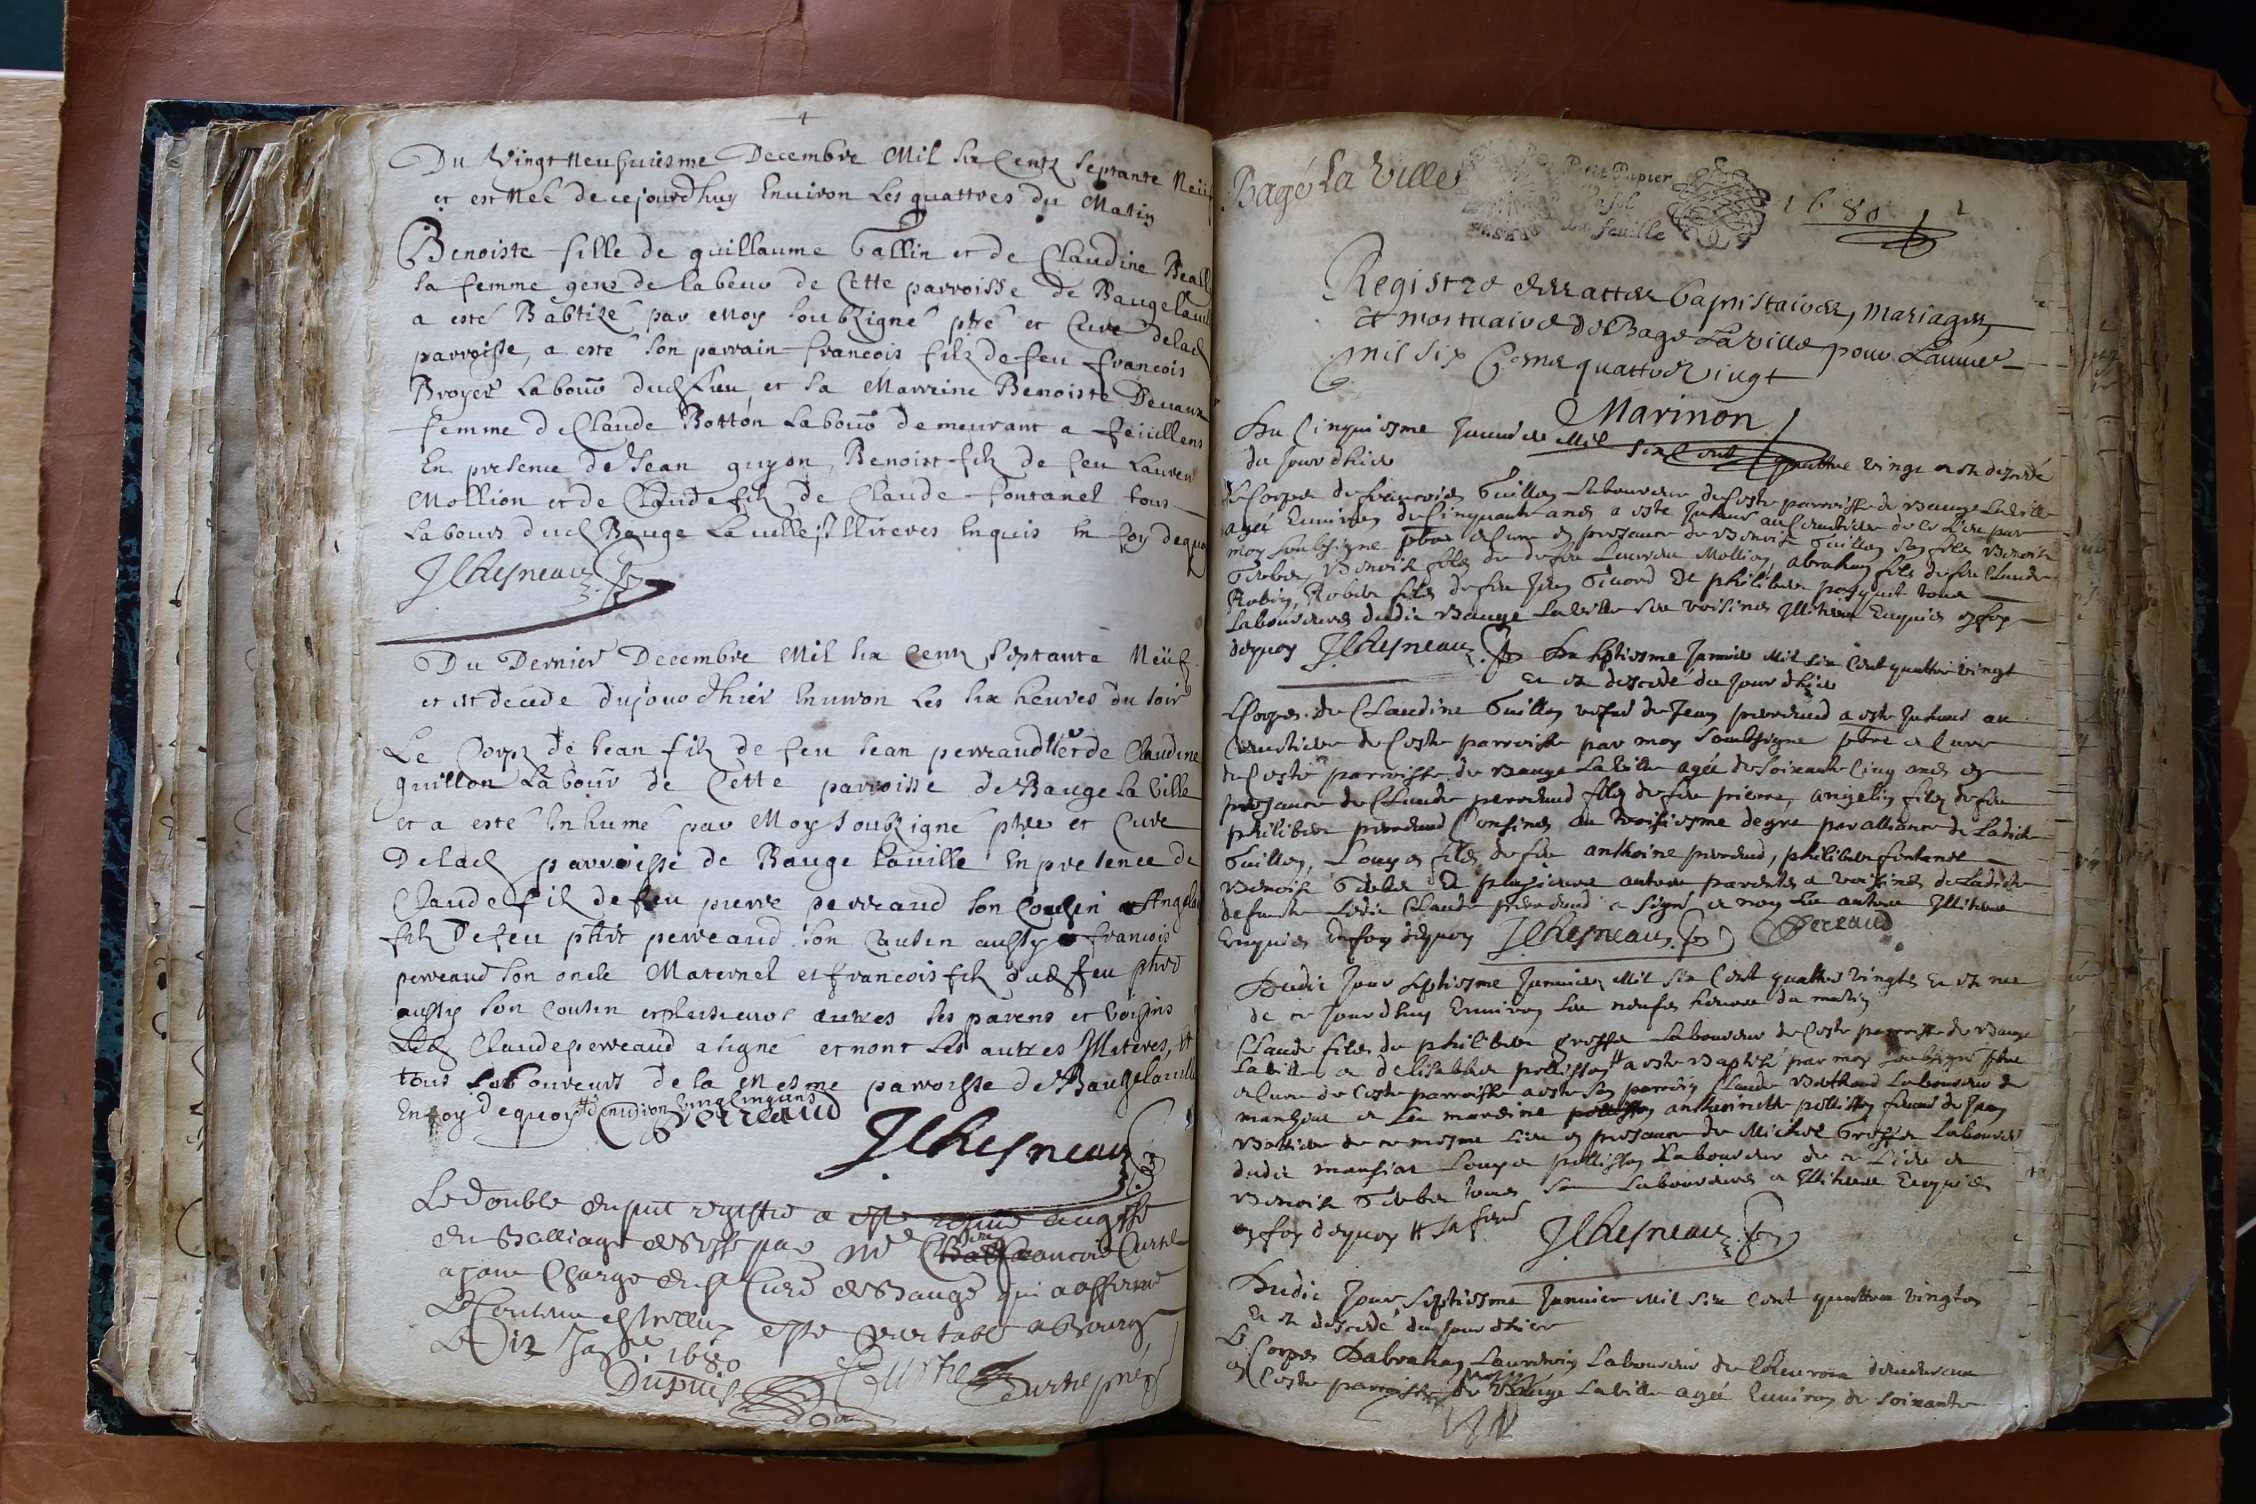 Du Vingt neufuiesme Decembre Mil six Centz septante neuf
et est née de cejourdhuy Enuiron Les quattres du Matin
Benoiste fille de guillaume Gallin et de Claudine Beall
sa femme gens de labeur de Cette parroisse de Baugelauil
a esté Babtizé par Moy soubzigné ptre et Curé delad
parroisse, a esté son parrain francois filz defeu francois
Broyer Labour dud Lieu, et sa Marreine Benoiste Deuaux
femme de Claude Botton Labour demeurant a feuillens
En presence de Jean guyon, Benoist filz de feu Lauren
Mollion et de Claude filz de Claude fontanel tous
Labours dud Bauge Lauille Illiteres Enquis En foy dequoy
JChesneau
Du Dernier Decembre Mil six Centz Septante Neuf
et est decede dujourdhier Enuiron Les six heures du soir
Le Corpz de Jean filz de feu Jean perreaud et de Claudine
guillon Labour de Cette parroisse de Bauge la Ville
et a esté Inhumé par Moy soubzigné ptre et Curé
Delad parroisse de Bauge lauille En presence de
Claude filz defeu pierre perreaud son Cousin Angelin
filz Defeu phbt perreaud son Cousin aussy francois
perreaud son oncle Maternel et francois filz dud feu phbt
aussy son Cousin et plusieurs autres ses parens et Voisins
Led Claude perreaud a signé et non Les autres Illiteres,
tous Laboureurs de la Mesme parroisse de Baugelauille
En foy dequoy
Perreaud
JChesneau
Le double du pnt registre a esté au greffe
du Balliage de Bresse par Me francois Curtil
ayant Charge du Sr Curé de Baugé qui a affirmé
Le Contenu en Icelluy estre veritable a Bourg
Le Dix 1680
Dupuis
Bagé La Ville
Petit Papier
feuille
1680
Registre des actes baptistaires, Mariages,
et mortuaire de Bagé La Ville pour Lannée
mil six Cens quattre Vingt
Marinon
Du Cinquiesme Januier Mil six Cent quattre vingt et est decedé
du Jour dhier
Le Corps de francois Guillon Laboureur de Ceste parroisse de Bauge La Ville
agé Enuiron de Cinquante ans a esté Inhumé au Cemetiere de ce Lieu par
moy soubsigné ptre et Curé en presence de Benoist Guillon son filz Benoist
Benoist filz de feu Laurent Mollion, abraham filz defeu Claude
Robin, filz defeu Jean et philibert tous
Laboureurs dudit Bauge La Ville ses voisins Illiteres Enquis en foy
dequoy JChesneau Du septiesme Januier Mil six Cent quattre vingt
et est decedé du Jour dhier
Le Corps de Claudine Guillon vefue de Jean perreaud a esté Inhumé au
Cemetiere de Ceste parroisse par moy soubsigné ptre et Curé
de Ceste parroisse de Bauge La Ville agée de soixante Cinq ans en
presence de Claude perreaud filz de feu pierre, angelin filz de feu
philibert perreaud Cousins au troisiesme degré par alliance de Ladite
Guillon, Louys filz de feu anthoine perreaud, philibert fontanel
Benoist et plusieurs autres parents et voisins de Ladite
defunte Ledit Claude perreaud a signé et non Les autres Illiteres
Enquis En foy dequoy JChesneau Perreaud
Dudit Jour septiesme Januier Mil six Cent quattre vingts et est né
de ce Jourdhuy Enuiron Les neufs heures du matin
Claude filz de philibert Laboureur de Ceste parroisse de Bauge
La Ville et de Elisabeth pellisson a esté Baptisé par moy soubsigné ptre
et Curé de Ceste parroisse a esté son parrain Claude Laboureur de
manziat et La marreine anthoinette pellisson femme de Jean
de ce mesme Lieu en presence de Michel Laboureur
dudit manziat Louys pellisson Laboureur de ce Lieu et
Benoist tous Laboureurs et Illiteres Enquis
en foy dequoy sa femme JChesneau
Dudit Jour Septiesme Januier Mil six Cent quattre vingts
et est decedé du Jour dhier
Le Corps Dabraham Laboureur de
en Ceste parroisse de Bauge La Ville agé Enuiron de soixante